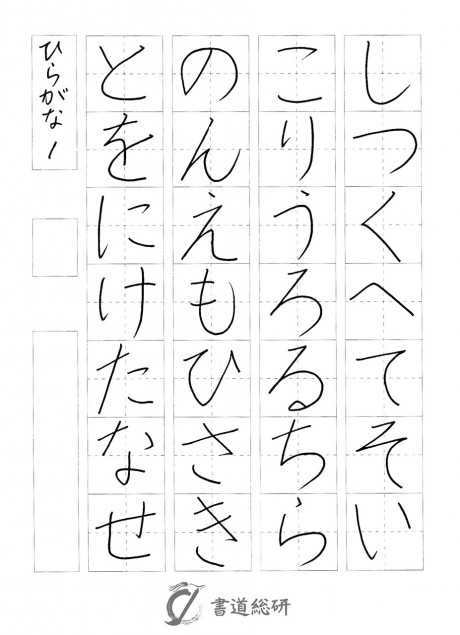 しつくへてそい
こりうろるちら
のんえもひさき
とをにけたなせ
ひらがな1
書道総研